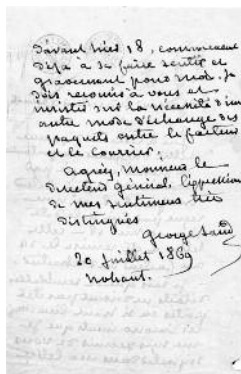 d'avant hier 18, commencent
déjà à se faire sentir et
gravement pour moi. Je
dois recourir à vous et
insister sur la nécessité d'un
autre mode d'échange des
paquets entre le facteur
et le courrier.
Agréez, Monsieur le
directeur général, l'expression
de mes sentiments très
distingués
George Sand
20 juillet 1869
Nohant.